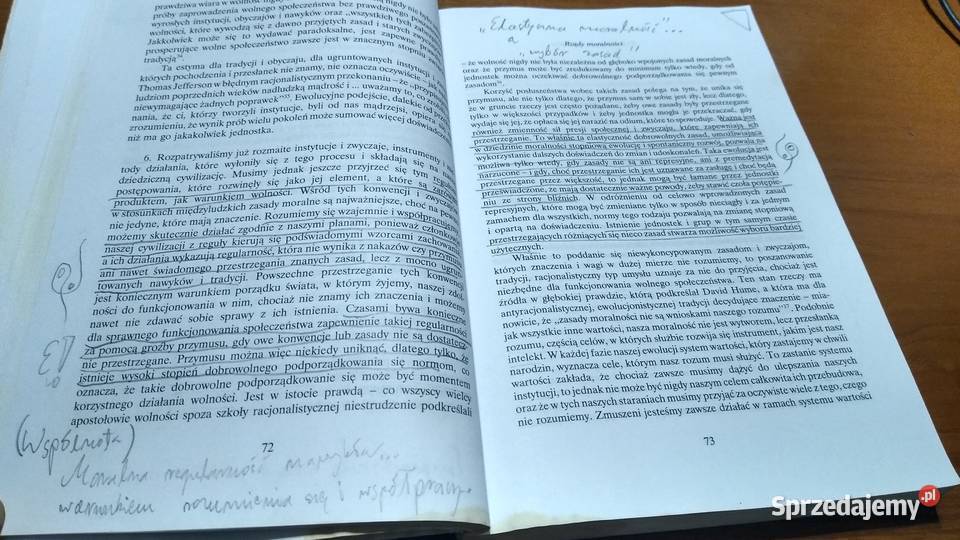 prawdziwa wiara w wolność
próby zaprowadzenia wolnego społeczeństwa bez prawdziwego
wyrosłych instytucji, obyczajów i nawyków oraz „wszystkich tych
wolności, które wywodzą się z dawno przyjętych zasad i starych
Jakkolwiek może się to wydawać paradoksalne, jest zapewne
prosperujące wolne społeczeństwo zawsze jest w znacznym stopniu
tradycją
Ta estyma dla tradycji i obyczaju, dla ugruntowanych instytucji i
których pochodzenia i przesłanek nie znamy, nie oznacza oczywiście
Thomas Jefferson w błędnym racjonalistycznym przekonaniu – że
ludziom poprzednich wieków nadludzką mądrość i ... uważamy to, co
niewymagające żadnych poprawek”. Ewolucyjne podejście, dalekie od
nania, że ci, którzy tworzyli instytucje, byli od nas mądrzejsi, opiera
zrozumieniu, że wynik prób wielu pokoleń może sumować więcej
niż ma go jakakolwiek jednostka.
6. Rozpatrywaliśmy już rozmaite instytucje i zwyczaje, instrumenty i
tody działania, które wyłoniły się z tego procesu i składają się na
dziedziczną cywilizację. Musimy jednak jeszcze przyjrzeć się tym regułom
postępowania, które rozwinęły się jako jej element, a które są
produktem, jak warunkiem wolności. Wśród tych konwencji i zwyczajów
w stosunkach międzyludzkich zasady moralne są najważniejsze, choć na pewno
nie jedyne, które mają znaczenie. Rozumiemy się wzajemnie i współpracujemy,
możemy skutecznie działać zgodnie z naszymi planami, ponieważ członkowie
naszej cywilizacji z reguły kierują się podświadomymi wzorcami zachowań
a ich działania wykazują regularność, która nie wynika z nakazów czy przymusu
ani nawet świadomego przestrzegania znanych zasad, lecz z mocno
towanych nawyków i tradycji. Powszechne przestrzeganie tych konwencji
jest koniecznym warunkiem porządku świata, w którym żyjemy, naszej zdol-
ności do funkcjonowania w nim, chociaż nie znamy ich znaczenia i możemy
nawet nie zdawać sobie sprawy z ich istnienia. Czasami bywa konieczne
dla sprawnego funkcjonowania społeczeństwa zapewnienie takiej regularności
za pomocą groźby przymusu, gdy owe konwencje lub zasady nie są dostatecz-
nie przestrzegane. Przymusu można więc niekiedy uniknąć, dlatego tylko, że
istnieje wysoki stopień dobrowolnego podporządkowania się normom, co
oznacza, że takie dobrowolne podporządkowanie się może być momentem
korzystnego działania wolności. Jest w istocie prawdą – co wszyscy wielcy
apostołowie wolności spoza szkoły racjonalistycznej niestrudzenie podkreślali
72
(Wspólnota)
Moralna regularność nawyków...
warunkiem rozumienia się i współpracy
„Elastyczna moralność”...
a
„wybór zasad”
Rządy moralności
– że wolność nigdy nie była niezależna od głęboko wpojonych zasad moralnych
oraz że przymus może być zredukowany do minimum tylko wtedy, gdy od
jednostek można oczekiwać dobrowolnego podporządkowania się pewnym
zasadom
Korzyść posłuszeństwa wobec takich zasad polega na tym, że unika się
przymusu, ale nie tylko dlatego, że przymus sam w sobie jest zły, lecz dlatego,
że w gruncie rzeczy jest często pożądane, żeby owe zasady były przestrzegane
tylko w większości przypadków i żeby jednostka mogła je przekraczać, gdy
wydaje się jej, że opłaca się jej narazić na odium, które to spowoduje. Ważna jest
również zmienność sił presji społecznej i zwyczaju, które zapewniają ich
przestrzeganie. To właśnie ta elastyczność dobrowolnych zasad, umożliwiająca
w dziedzinie moralności stopniową ewolucję i spontaniczny rozwój, pozwala na
wykorzystanie dalszych doświadczeń do zmian i udoskonaleń. Taka ewolucja jest
możliwa tylko wtedy, gdy zasady nie są ani represyjne, ani z premedytacją
narzucone – i gdy, choć przestrzeganie ich jest uznawane za zasługę i choć będą
przestrzegane przez większość, to jednak mogą być łamane przez jednostki
przeświadczone, że mają dostatecznie ważne powody, żeby stawić czoła potępie-
niu ze strony bliźnich. W odróżnieniu od celowo wprowadzonych zasad
represyjnych, które mogą być zmieniane tylko w sposób nieciągły i za jednym
zamachem dla wszystkich, normy tego rodzaju pozwalają na zmianę stopniową
i opartą na doświadczeniu. Istnienie jednostek i grup w tym samym czasie
przestrzegających różniących się nieco zasad stwarza możliwość wyboru bardziej
użytecznych.
Właśnie to poddanie się niewykoncypowanym zasadom i zwyczajom,
których znaczenia i wagi w dużej mierze nie rozumiemy, to poszanowanie
tradycji, racjonalistyczny typ umysłu uznaje za nie do przyjęcia, chociaż jest
niezbędne dla funkcjonowania wolnego społeczeństwa. Ten stan rzeczy ma
źródła w głębokiej prawdzie, którą podkreślał David Hume, a która ma dla
antyracjonalistycznej, ewolucjonistycznej tradycji decydujące znaczenie – mia-
nowicie, że „zasady moralności nie są wnioskami naszego rozumu”. Podobnie
jak wszystkie inne wartości, nasza moralność nie jest wytworem, lecz przesłanką
rozumu, częścią celów, w których służbie rozwija się instrument, jakim jest nasz
intelekt. W każdej fazie naszej ewolucji system wartości, który zastajemy w chwili
narodzin, wyznacza cele, którym nasz rozum musi służyć. To zastanie systemu
wartości zakłada, że chociaż zawsze musimy dążyć do ulepszania naszych
instytucji, to jednak nie może być nigdy naszym celem całkowita ich przebudowa,
oraz że w tych naszych staraniach musimy przyjąć za oczywiste wiele z tego, czego
nie rozumiemy. Zmuszeni jesteśmy zawsze działać w ramach systemu wartości
73
Sprzedajemy.pl